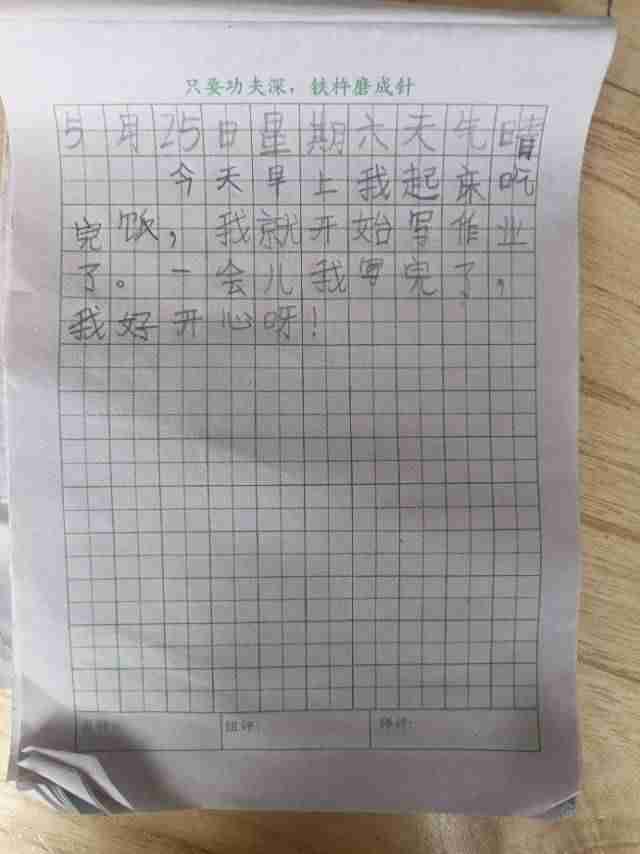 只要功夫深，铁杵磨成针
5月25日星期六天气晴
今天早上我起床吃
完饭，我就开始写作业
了。一会儿我写完了，
我好开心呀！
组评：
师评：